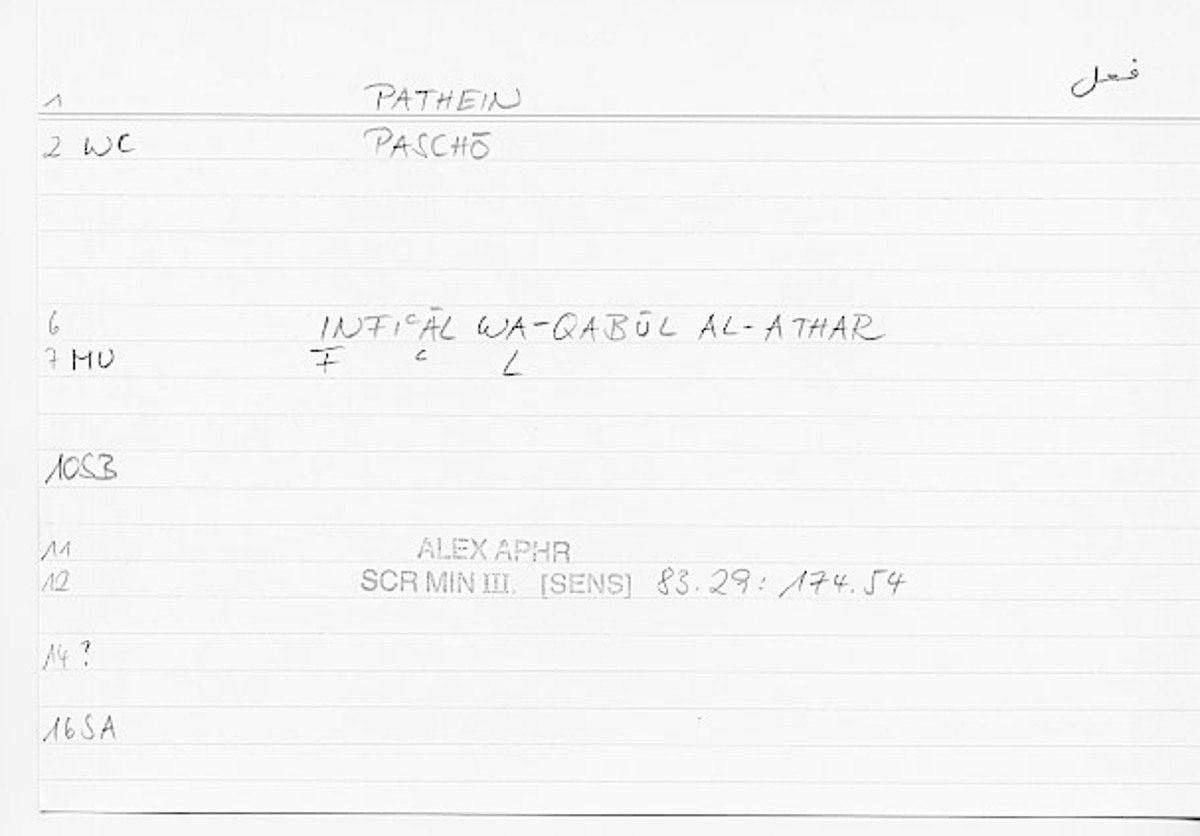 فعل
1 PATHEIN
2 WC PASCHŌ
6 INFIᶜĀL WA-QABŪL AL-ATHAR
7 MU F ᶜ L
10SB
11 ALEX APHR
12 SCR MIN III. [SENS] 83.29: 174.54
14 ?
16SA